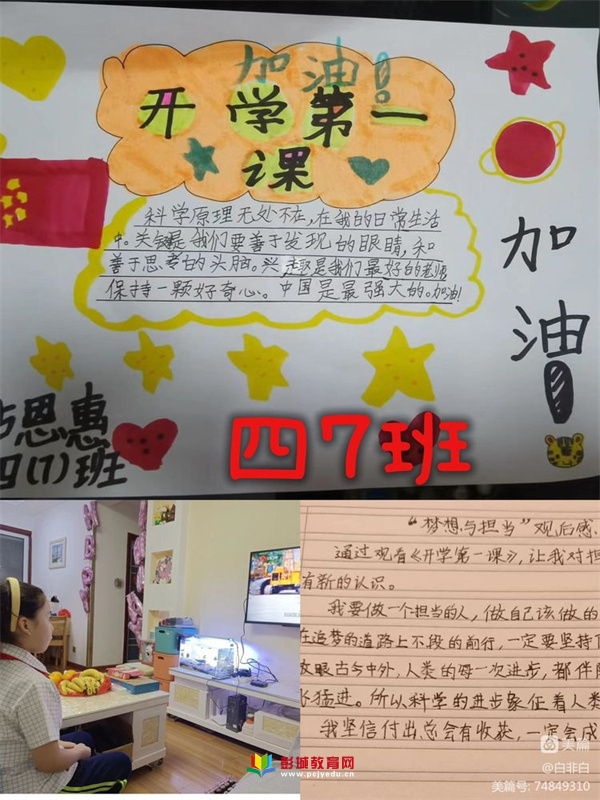 加油!
开学第一
课
科学原理无处不在,在我的日常生活
中。关键是我们要善于发现的眼睛,和
善于思考的头脑。兴趣是我们最好的老师
保持一颗好奇心。中国是最强大的。加油!
加
油
!
恩惠
(7)班
四7班
“梦想与担当”观后感.
通过观看《开学第一课》,让我对担
有新的认识。
我要做一个担当的人,做自己该做的
在追梦的道路上不段的前行,一定要坚持
放眼古今中外,人类的每一次进步,都伴
飞猛进。所以科学的进步象征着人类
我坚信付出总会有收获,一定会成
美篇
@白非白
美篇号: 74849310
彭城教育网
www.pcjyedu.cn